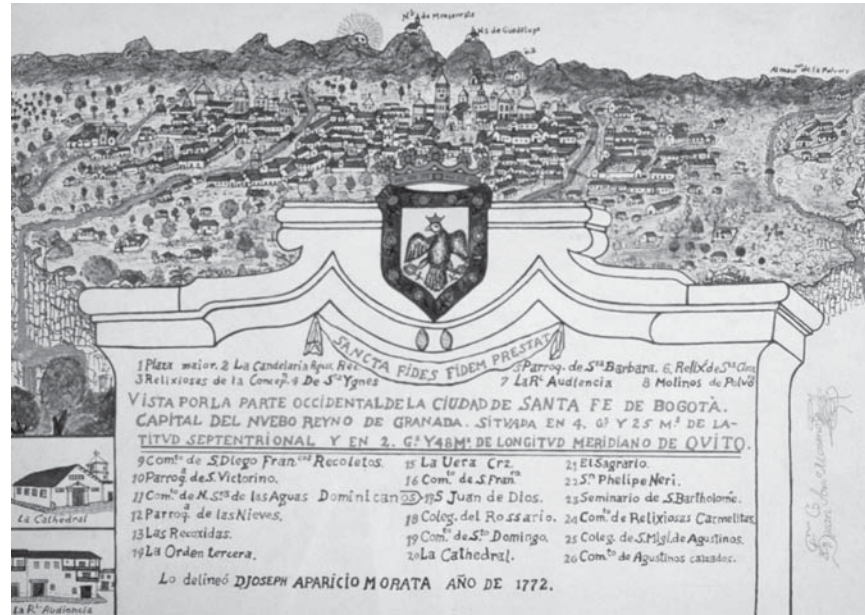 N.ª S.ª de Monserrate
N.S de Guadalupe
Almacen de la Polvora
SANCTA FIDES FIDEM PRESTAT
1 Plaza maior. 2 La Candelaria Agus. Rec.
3 Relixiosas de la Concep. 4 De S.ta Ygnes
5 Parroq. de S.ta Barbara. 6. Relix.s de S.ta Clara
7 La R.l Audiencia 8 Molinos de Polvo.ra
VISTA POR LA PARTE OCCIDENTAL DE LA CIUDAD DE SANTA FE DE BOGOTÀ.
CAPITAL DEL NVEBO REYNO DE GRANADA. SITVADA EN 4. G.s Y 25 M.s DE LA-
TITVD SEPTENTRIONAL Y EN 2. G.s Y 48 M.s DE LONGITVD MERIDIANO DE QVITO.
9 Com.to de S. Diego Fran.cos Recoletos.
10 Parroq.a de S. Victorino.
11 Com.to de N. S.ra de las Aguas Dominicanos
12 Parroq.a de las Nieves.
13 Las Recoxidas.
19 La Orden tercera.
15 La Uera Crz.
16 Com.to de S. Fran.co
17 S Juan de Dios.
18 Coleg. del Rossario.
19 Com.to de S.to Domingo.
20 La Cathedral.
21 El Sagrario.
22 S.n Phelipe Neri.
23 Seminario de S. Bartholome.
24 Com.to de Relixiosas Carmelitas.
25 Coleg. de S. Migl. de Agustinos.
26 Com.to de Agustinos calzados.
Lo delineó DJOSEPH APARICIO MORATA AÑO DE 1772.
La Cathedral
La R.l Audiencia